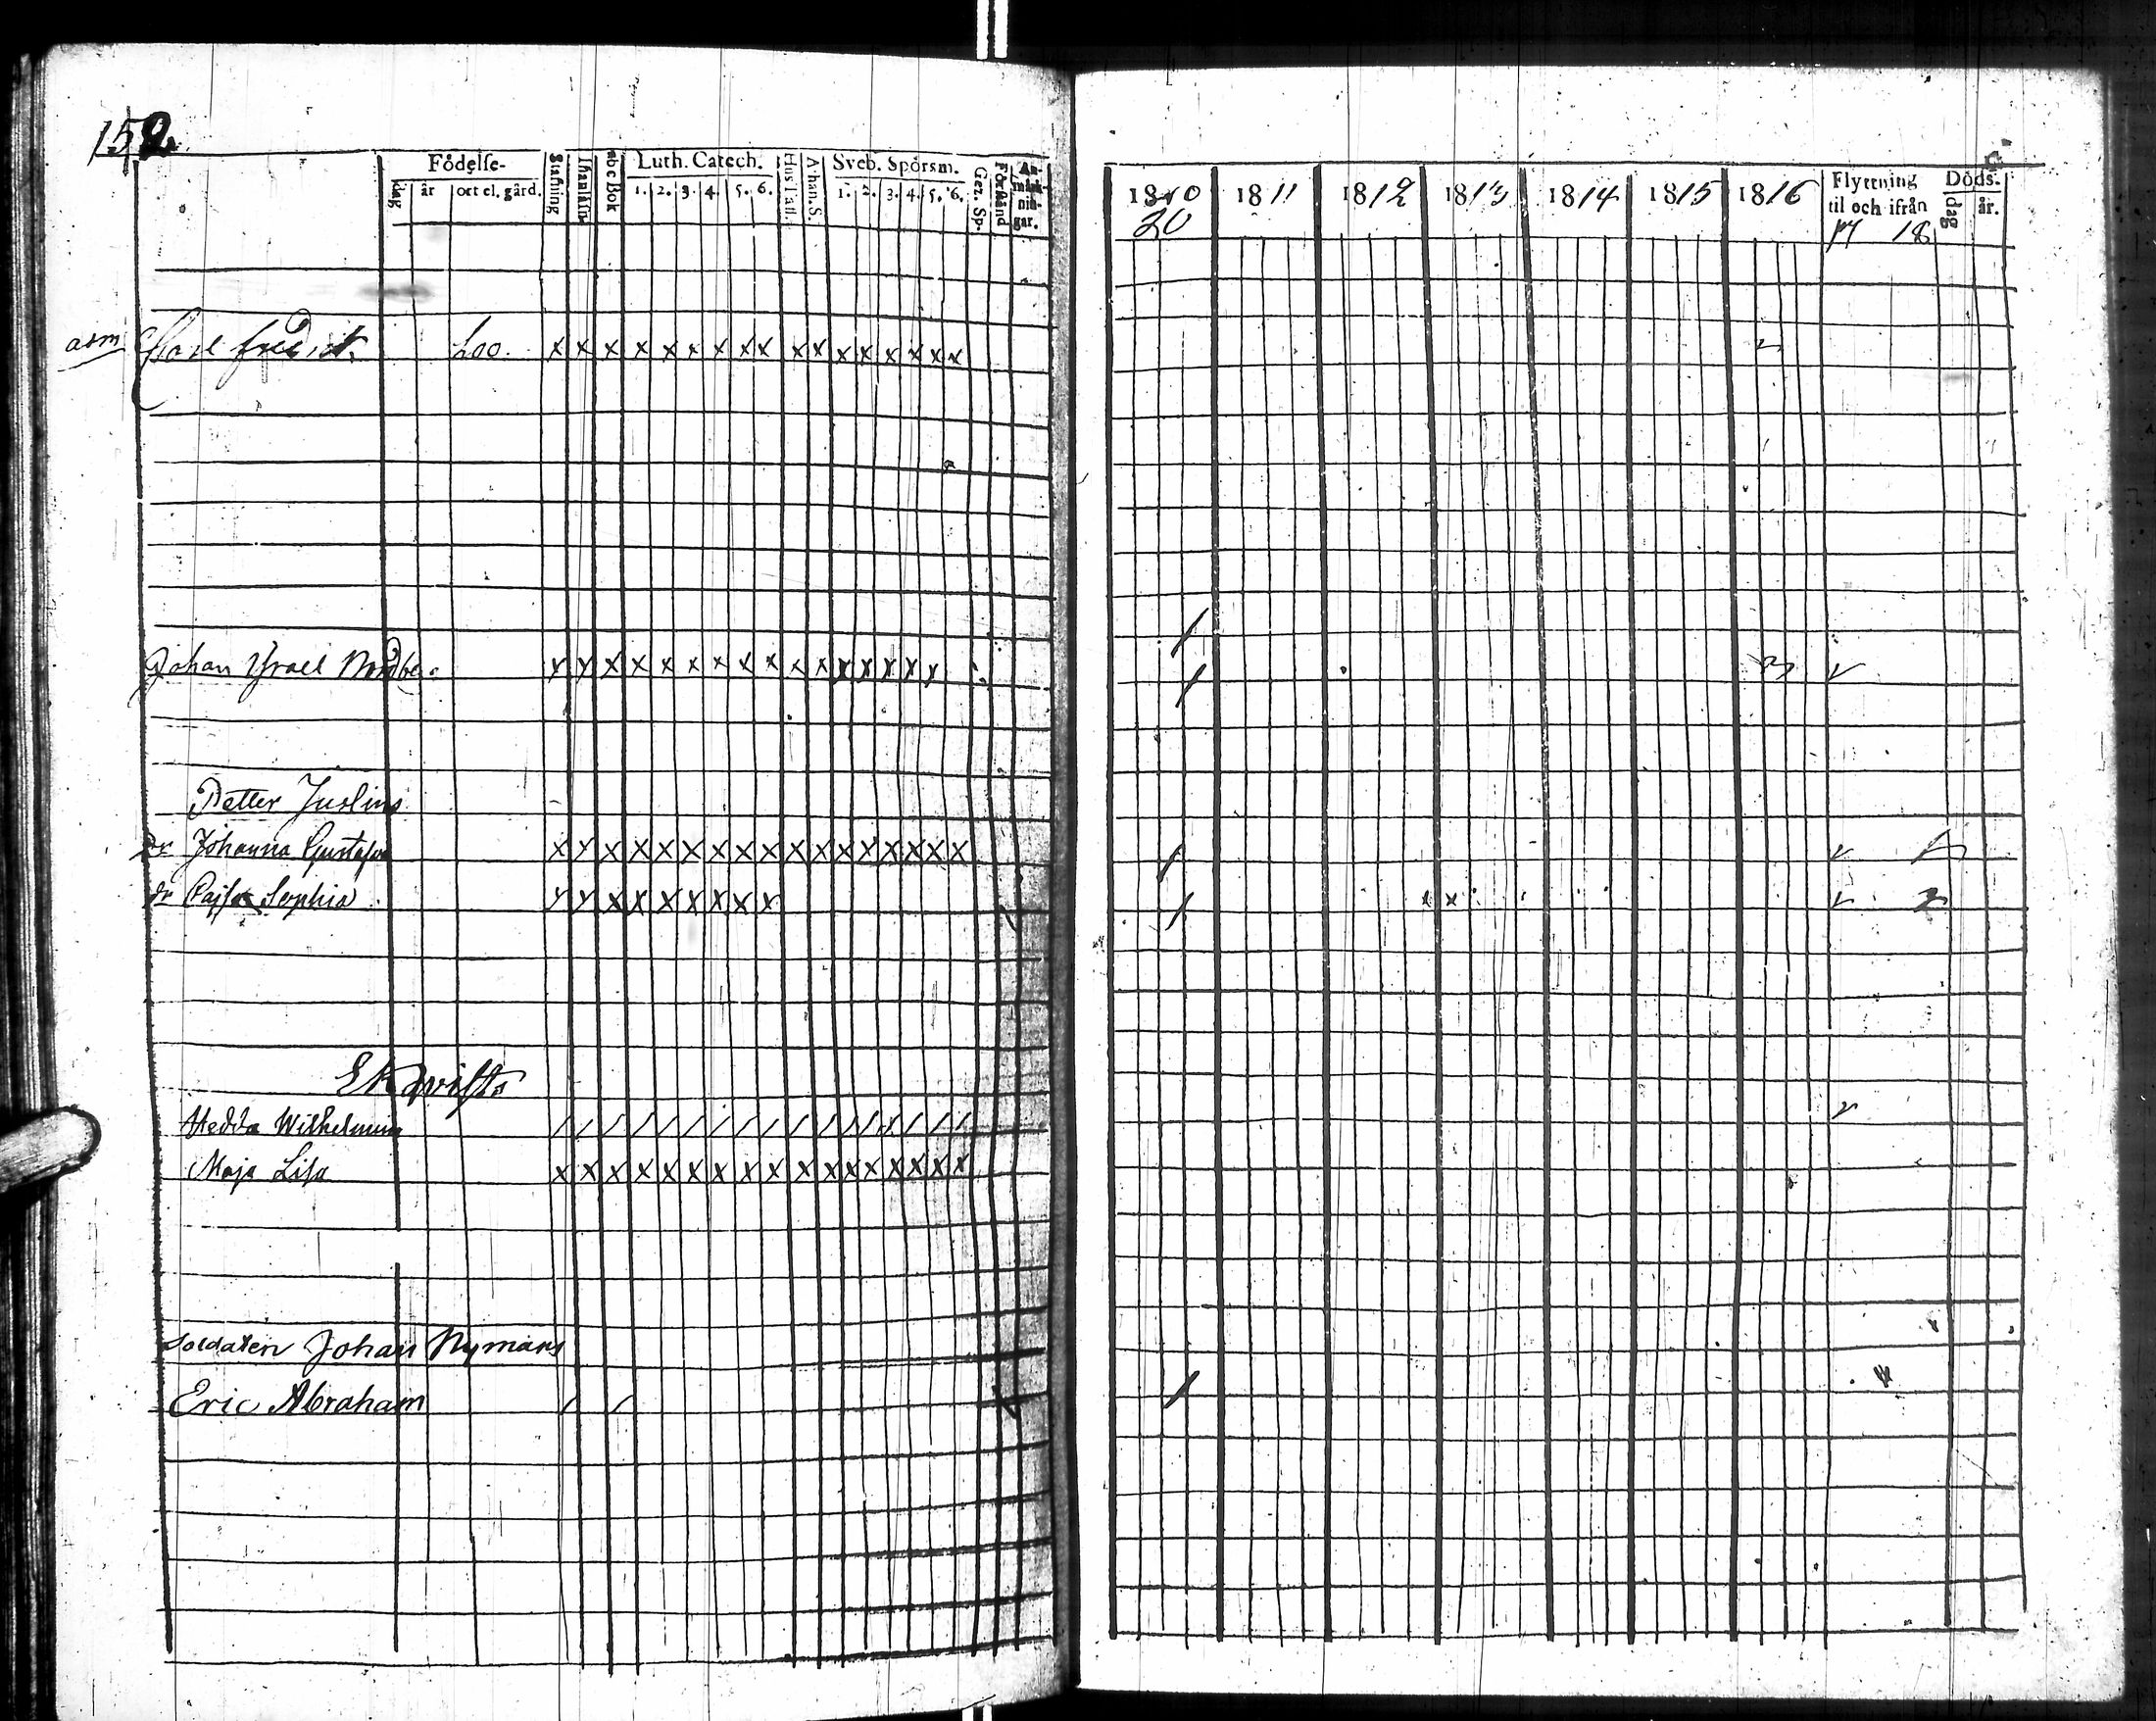 152
Födelse-
dag år ort el. gård.
Stafning
Innanläsn.
abc Bok
Luth. Catech.
1. 2. 3. 4. 5. 6.
Hus Tafl.
Athan. S.
Sveb. Spörsm.
1. 2. 3. 4. 5. 6.
Gez. Sp.
Förstånd
An-
märk-
nin-
gar.
1810 1811 1812 1813 1814 1815 1816
20
Flyttning
til och ifrån
17 18
Döds-
dag år.
Carl Loo. x x x x x x x x x x x x x x x x x
Johan Ysrael x x x x x x x x x x x x x x x x
Petter Juslins
dr Johanna Gustafva x x x x x x x x x x x x x x x x x
dr Cajsa Sophia x x x x x x x x x
Hedda Wilhelmina / / / / / / / / / / / / / / / / /
Maja Lisa x x x x x x x x x x x x x x x x x
Soldaten Johan Nymans
Eric Abraham / /